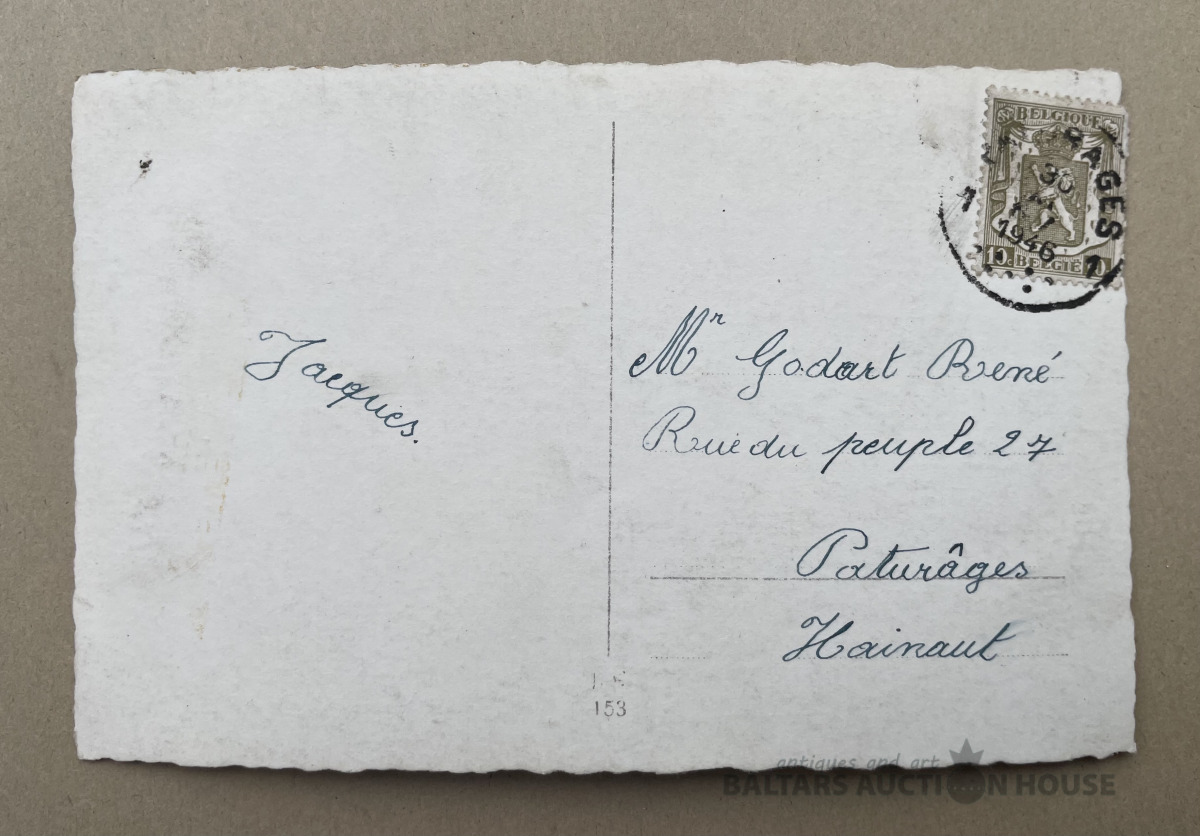 Jacques.
BELGIQUE
RAGES 1
30
1946
10c BELGIË 10
Mr Godart René
Rue du peuple 27
Paturâges
Hainaut
153
antiques and art
BALTARS AUCTION HOUSE